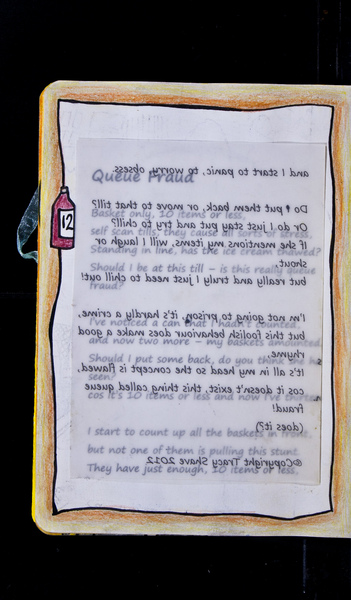 12
Queue Fraud
Basket only, 10 items or less,
self scan tills, they cause all sorts of stress.
Standing in line, has the ice cream thawed?
Should I be at this till – is this really queue
fraud?
I've noticed a can that I hadn't counted,
and now two more – my baskets amounted.
Should I put some back, do you think she has
seen?
cos it's 10 items or less and now I've thirteen
I start to count up all the baskets in front,
but not one of them is pulling this stunt.
They have just enough, 10 items or less,
and I start to panic, to worry, obsess.
Do I put them back, or move to that till?
Or do I just stay put and try to chill?
If she mentions my items, will I laugh or
shout
but really and truly I just need to chill out!
I'm not going to prison, it's hardly a crime,
but this foolish behaviour does make a good
rhyme.
It's all in my head so the concept is flawed,
cos it doesn't exist, this thing called queue
fraud!
(does it?)
©Copyright Tracy Shave 2012